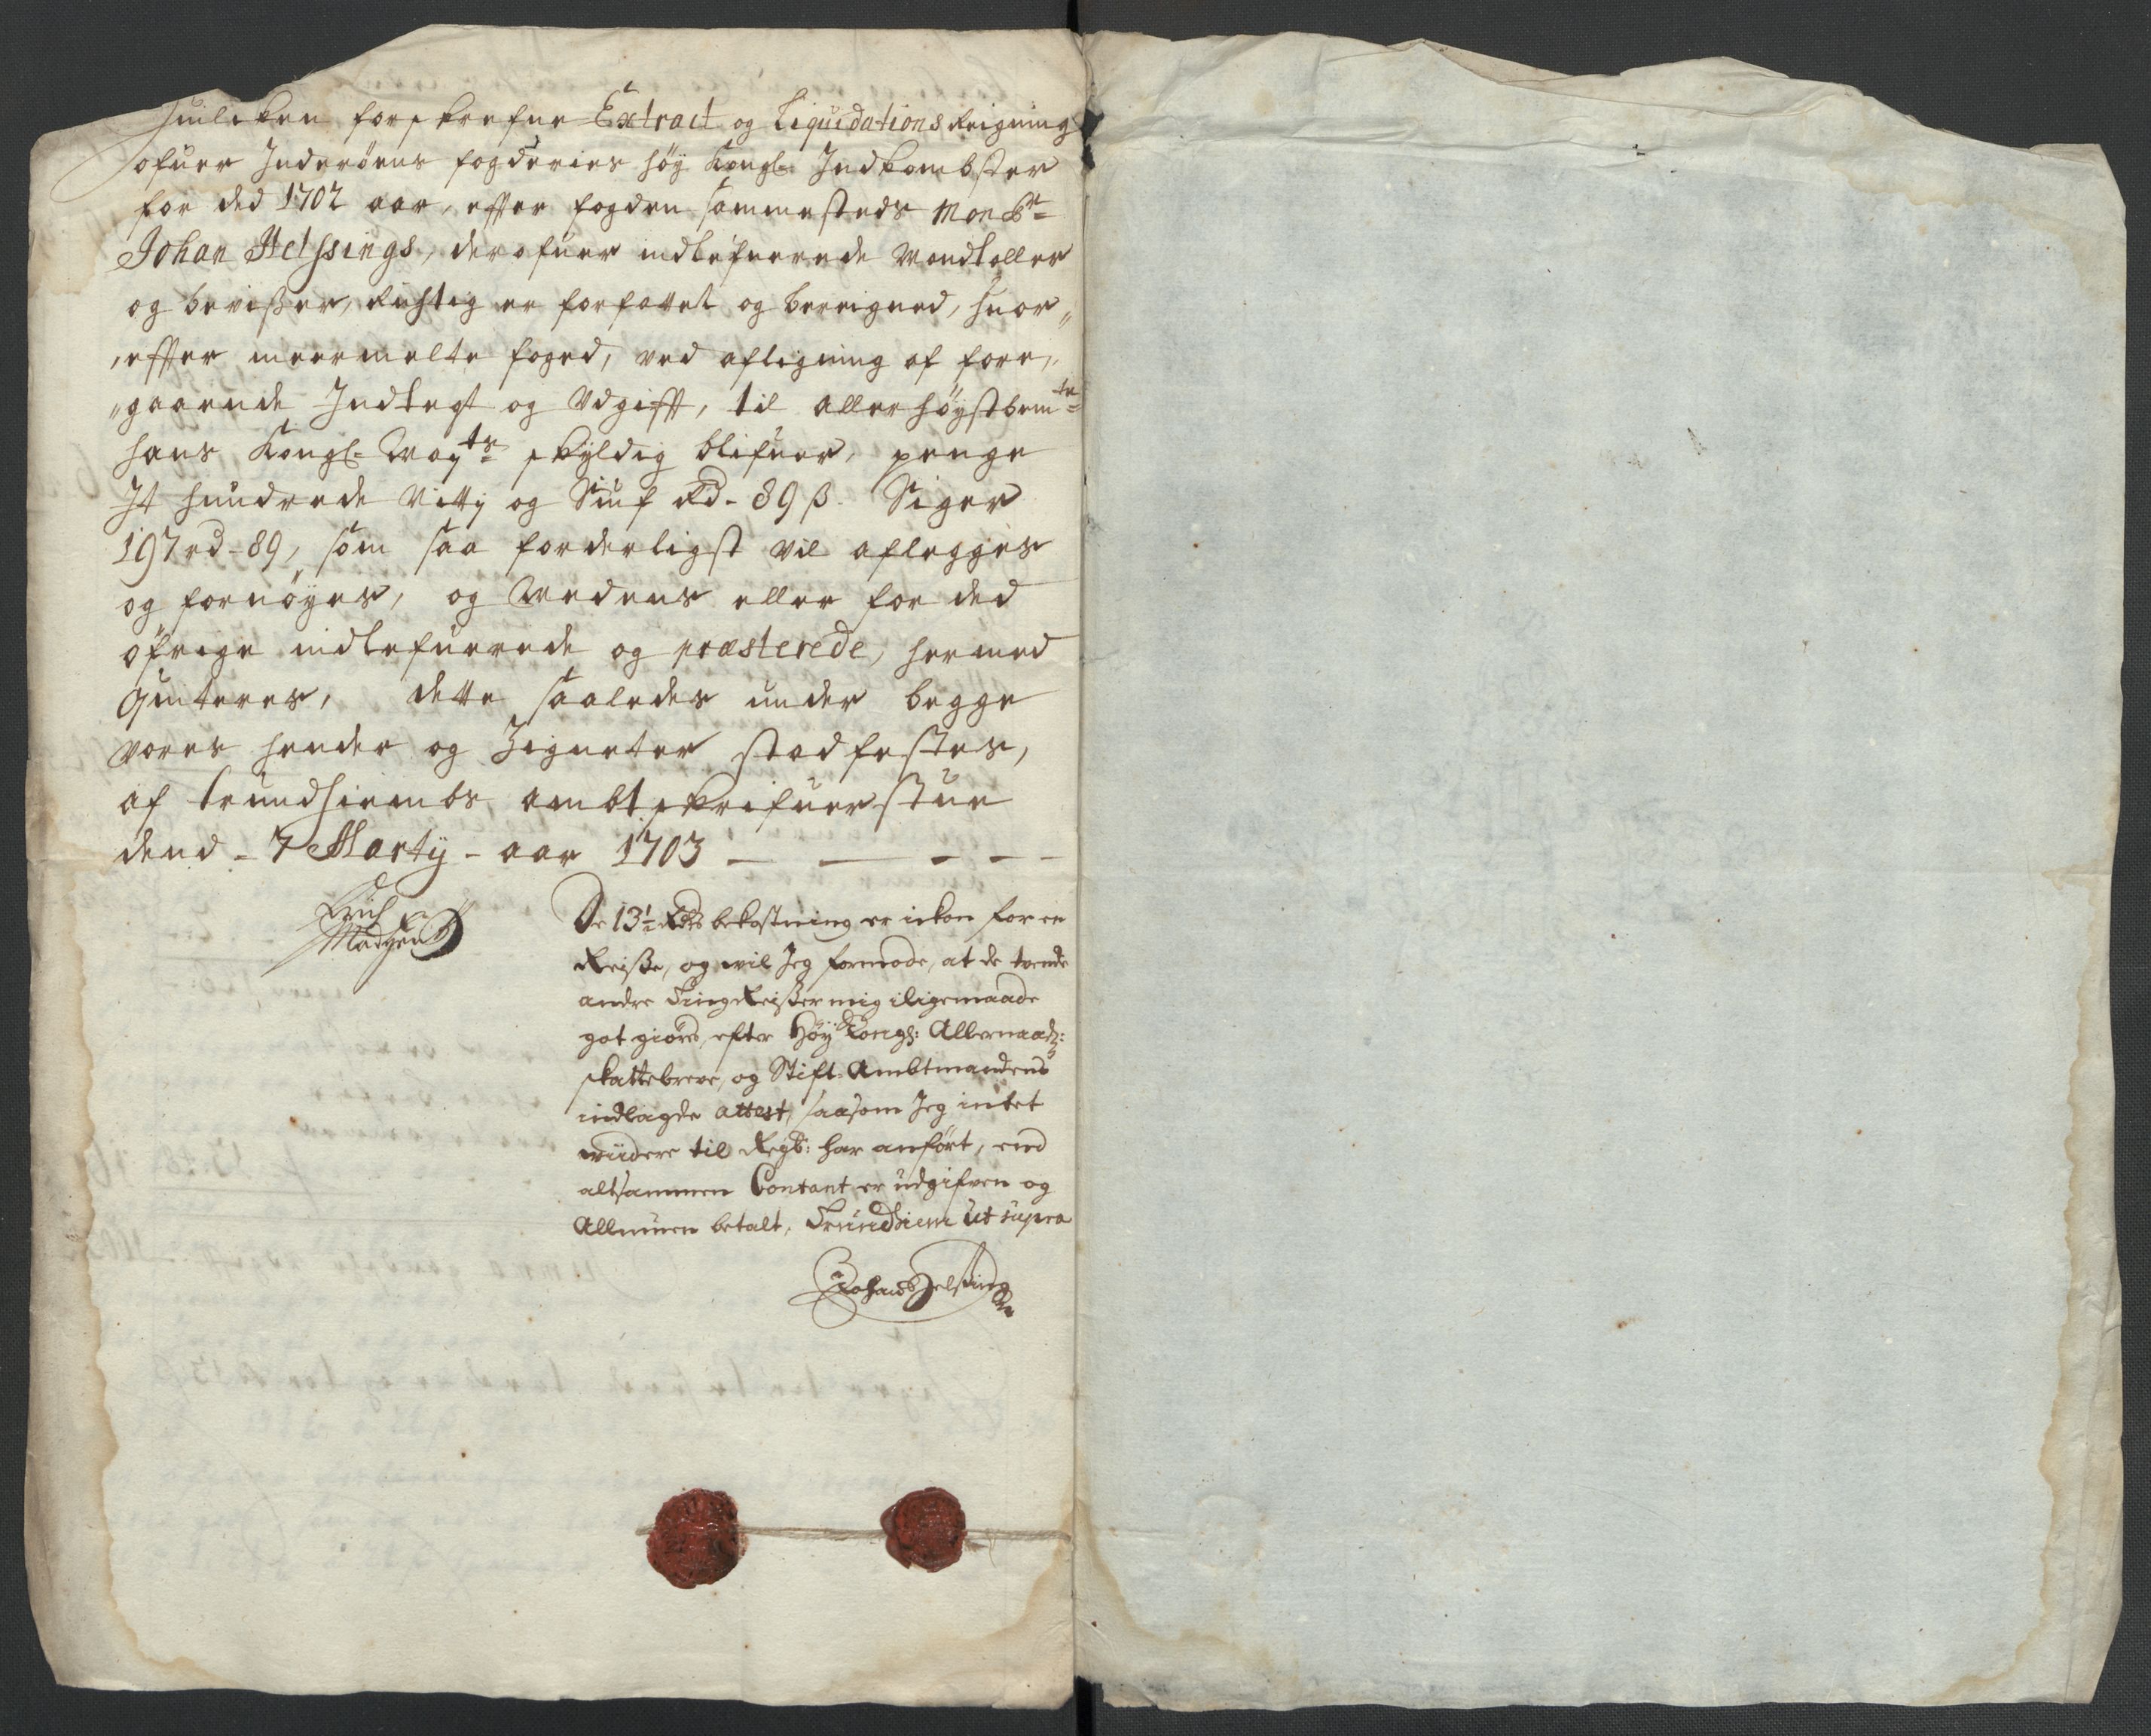 Huilcken forskrefne Extract og Liquidations Reigning
ofuer Inderöens fogderies höy Kongl: Indkombster
for ded 1702 aar, effter fogden sammesteds Mons:r
Johan Helssings, derofuer indlefuerede Mandtaller
og bevisser, Richtig er forfattet og bereigned, huor„
„effter meermelte foged, ved afligning af fore„
„gaaende Indtegt og Udgifft, til allerhöystbem:te
hans Kongl: May:ts skyldig blifuer, penge
It hundrede Nitti og Siuf Rd - 89 ß. Siger
197 rd - 89, som saa forderligst vil aflegges
og fornöyes, og Medens eller for ded
öfrige indlefuerede og præsterede, hermed
Quiteres, dette saaledes under begge
vores hender og Zigneter stadfestes,
af Trundhiembs ambtskrifuerstue
dend - 7 Marty - aar 1703
Erich
Madzen
De 13½ Rdrs bekostning er ickon for en
Reisse, og vil Jeg formode, at de tvende
andre Ting Reisser mig iligemaade
got giöres, efter Höy Kongl: Allernaad:
skattebreve, og Stift Ambtmandens
indlagde attest, saasom Jeg intet
viidere til Regb: har anfört, end
altsammen Contant er udgifven og
Allmuen betalt, Trundhiem Ut supra
Johan Helssing